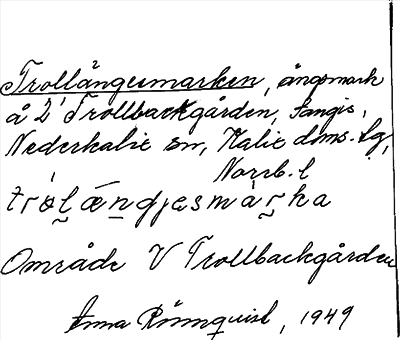 Trollängesmarken, ängsmark
å 2' Trollbackgården, Sangis,
Nederkalix sn, Kalix doms. lg,
Norrb. l
Område V Trollbackgården
Anna Rönnquist, 1949